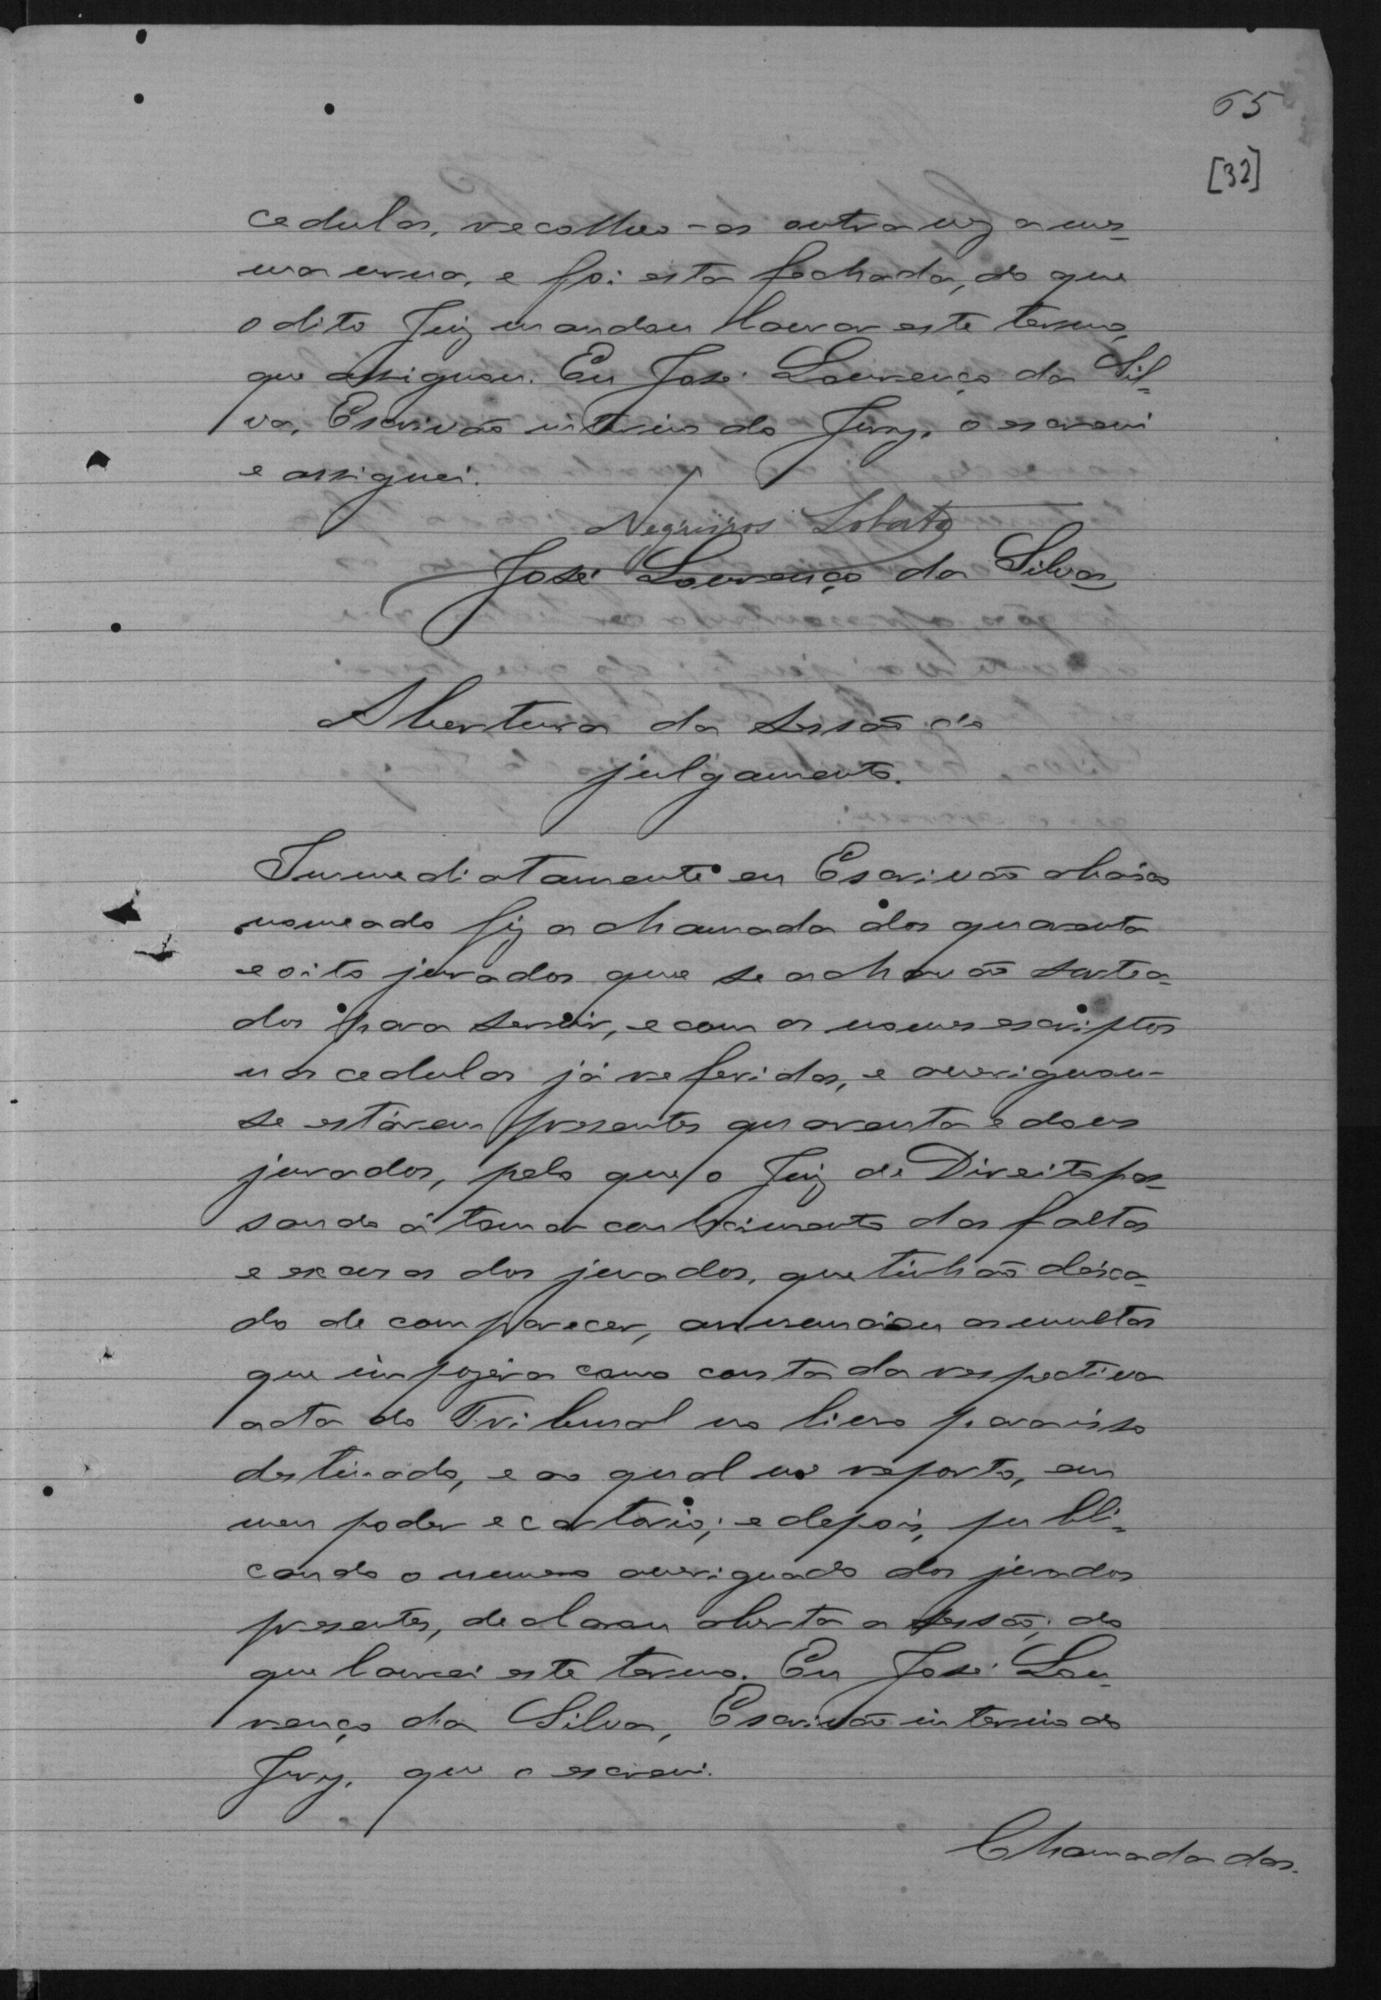 65
[32]
cedulas, recolheo-as outra vez a mes-
ma urna, e foi esta fechada, do que
o dito Juiz mandou lavrar este termo,
que assignou. Eu José Lourenço da Sil-
va, Escrivão interino do Jury, o escrevi
e assignei.
Negreiros Lobato
José Lourenço da Silva
Abertura da sessão de
julgamento.
Immediatamente eu Escrivão abaixo
nomeado fiz a chamada dos quarenta
e oito jurados que se achavão sortea-
dos para servir, e com os nomes escriptos
nas cedulas já referidas, e averiguou-
se estárem presentes quarenta e dous
jurados, pelo que o Juiz de Direito pas-
sando a tomar conhecimento das faltas
e excusas dos jurados, que tinhão deixa-
do de comparecer, annunciou as multas
que impozéra como consta da respectiva
acta do Tribunal no livro para isso
destinado, e ao qual me reporto, em
meu poder e cartorio; e depois, publi-
cando o numero averiguado dos jurados
presentes, declarou aberta a sessão; do
que lavrei este termo. Eu José Lou-
renço da Silva, Escrivão interino do
Jury, que o escrevi.
Chamada das